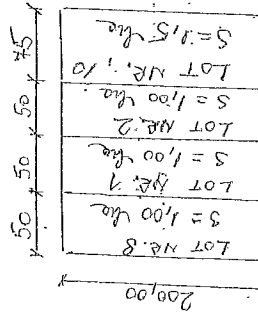 200,00
LOT NR. 8
S = 1,00 ha
LOT NR.
S = 1,00 ha
LOT NR. 2
S = 1,00 ha
LOT NR. 10
S = 1,5 ha
50
50
50
75